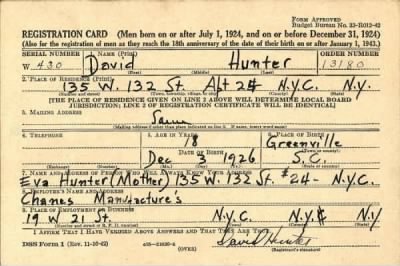 FORM APPROVED
Budget Bureau No. 33-R012-42
REGISTRATION CARD (Men born on or after July 1, 1924, and on or before December 31, 1924)
(Also for the registration of men as they reach the 18th anniversary of the date of their birth on or after January 1, 1943.)
SERIAL NUMBER 1. NAME (Print) ORDER NUMBER
W 430 David Hunter 13180
(First) (Middle) (Last)
2. PLACE OF RESIDENCE (Print)
135 W. 132 St. Apt 24 N.Y.C. N.Y.
(Number and street) (Town, township, village, or city) (County) (State)
[THE PLACE OF RESIDENCE GIVEN ON LINE 2 ABOVE WILL DETERMINE LOCAL BOARD
JURISDICTION; LINE 2 OF REGISTRATION CERTIFICATE WILL BE IDENTICAL]
3. MAILING ADDRESS
Same
[Mailing address if other than place indicated on line 2. If same, insert word same]
4. TELEPHONE 5. AGE IN YEARS 6. PLACE OF BIRTH
18 Greenville
DATE OF BIRTH (Town or county)
Dec 3 1926 S.C.
(Exchange) (Number) (Mo.) (Day) (Yr.) (State or country)
7. NAME AND ADDRESS OF PERSON WHO WILL ALWAYS KNOW YOUR ADDRESS
Eva Hunter (Mother) 135 W. 132 St. #24 - N.Y.C.
8. EMPLOYER'S NAME AND ADDRESS
Manufacture's
9. PLACE OF EMPLOYMENT OR BUSINESS
19 W 21 St. N.Y.C. N.Y.
(Number and street or R. F. D. number) (Town) (County) (State)
I AFFIRM THAT I HAVE VERIFIED ABOVE ANSWERS AND THAT THEY ARE TRUE.
DSS Form 1 (Rev. 11-16-42) (OVER) David Hunter